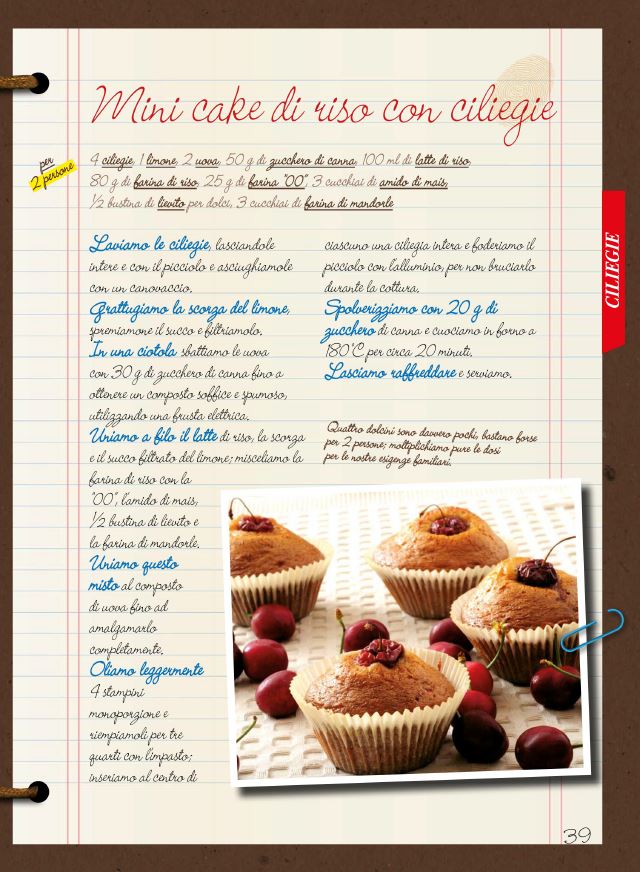 Mini cake di riso con ciliegie
per
2 persone
4 ciliegie, 1 limone, 2 uova, 50 g di zucchero di canna, 100 ml di latte di riso,
80 g di farina di riso, 25 g di farina "00", 3 cucchiai di amido di mais,
1/2 bustina di lievito per dolci, 3 cucchiai di farina di mandorle
Laviamo le ciliegie, lasciandole
intere e con il picciolo e asciughiamole
con un canovaccio.
Grattugiamo la scorza del limone,
spremiamone il succo e filtriamolo.
In una ciotola sbattiamo le uova
con 30 g di zucchero di canna fino a
ottenere un composto soffice e spumoso,
utilizzando una frusta elettrica.
Uniamo a filo il latte di riso, la scorza
e il succo filtrato del limone; misceliamo la
farina di riso con la
"00", l'amido di mais,
1/2 bustina di lievito e
la farina di mandorle.
Uniamo questo
misto al composto
di uova fino ad
amalgamarlo
completamente.
Oliamo leggermente
4 stampini
monoporzione e
riempiamoli per tre
quarti con l'impasto;
inseriamo al centro di
ciascuno una ciliegia intera e foderiamo il
picciolo con l'alluminio, per non bruciarlo
durante la cottura.
Spolverizziamo con 20 g di
zucchero di canna e cuociamo in forno a
180°C per circa 20 minuti.
Lasciamo raffreddare e serviamo.
Quattro dolcini sono davvero pochi, bastano forse
per 2 persone; moltiplichiamo pure le dosi
per le nostre esigenze familiari.
CILIEGIE
39